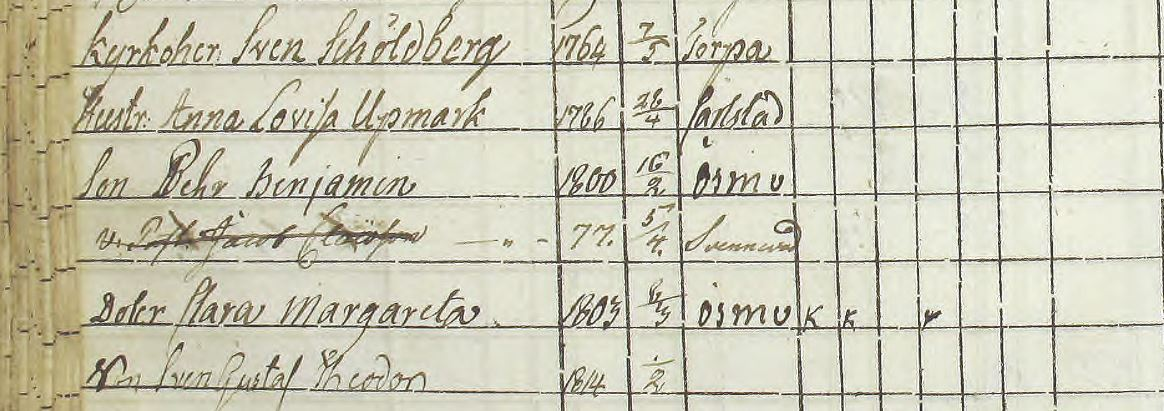 Kyrkoher Sven Schöldberg 1764 7/5 Torpa
Hustr: Anna Lovisa Upmark 1766 28/4 Carlstad
Son Pehr Benjamin 1800 16/2 Ösmu
Jacob 77. 5/4.
Doter Clara Margareta 1803 Ösmu K K
Son Sven Gustaf Theodor 1814 /2